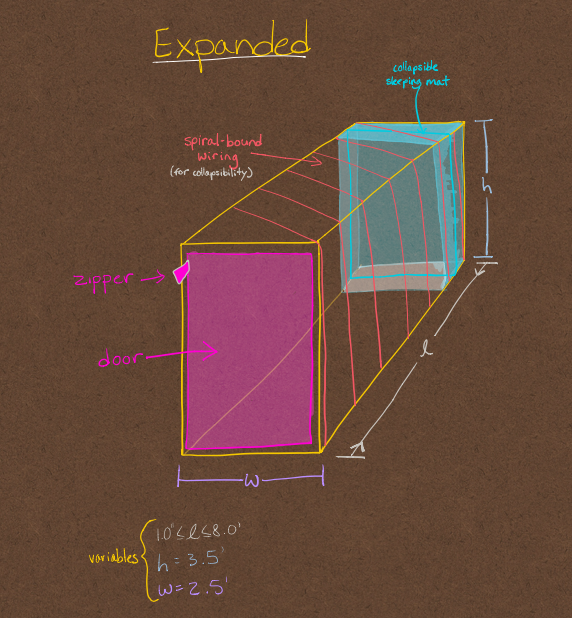 Expanded
collapsible
sleeping mat
spiral-bound
wiring
(for collapsibility)
h
zipper
door
l
w
variables
1.0' ≤ l ≤ 8.0'
h = 3.5'
w = 2.5'